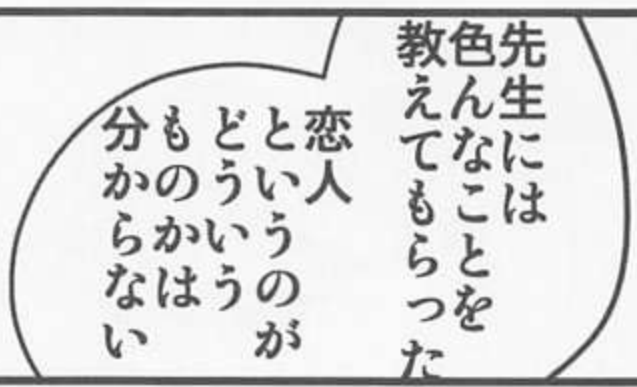 先生には
色んなことを
教えてもらった
恋人
というのが
どういう
ものかは
分からない